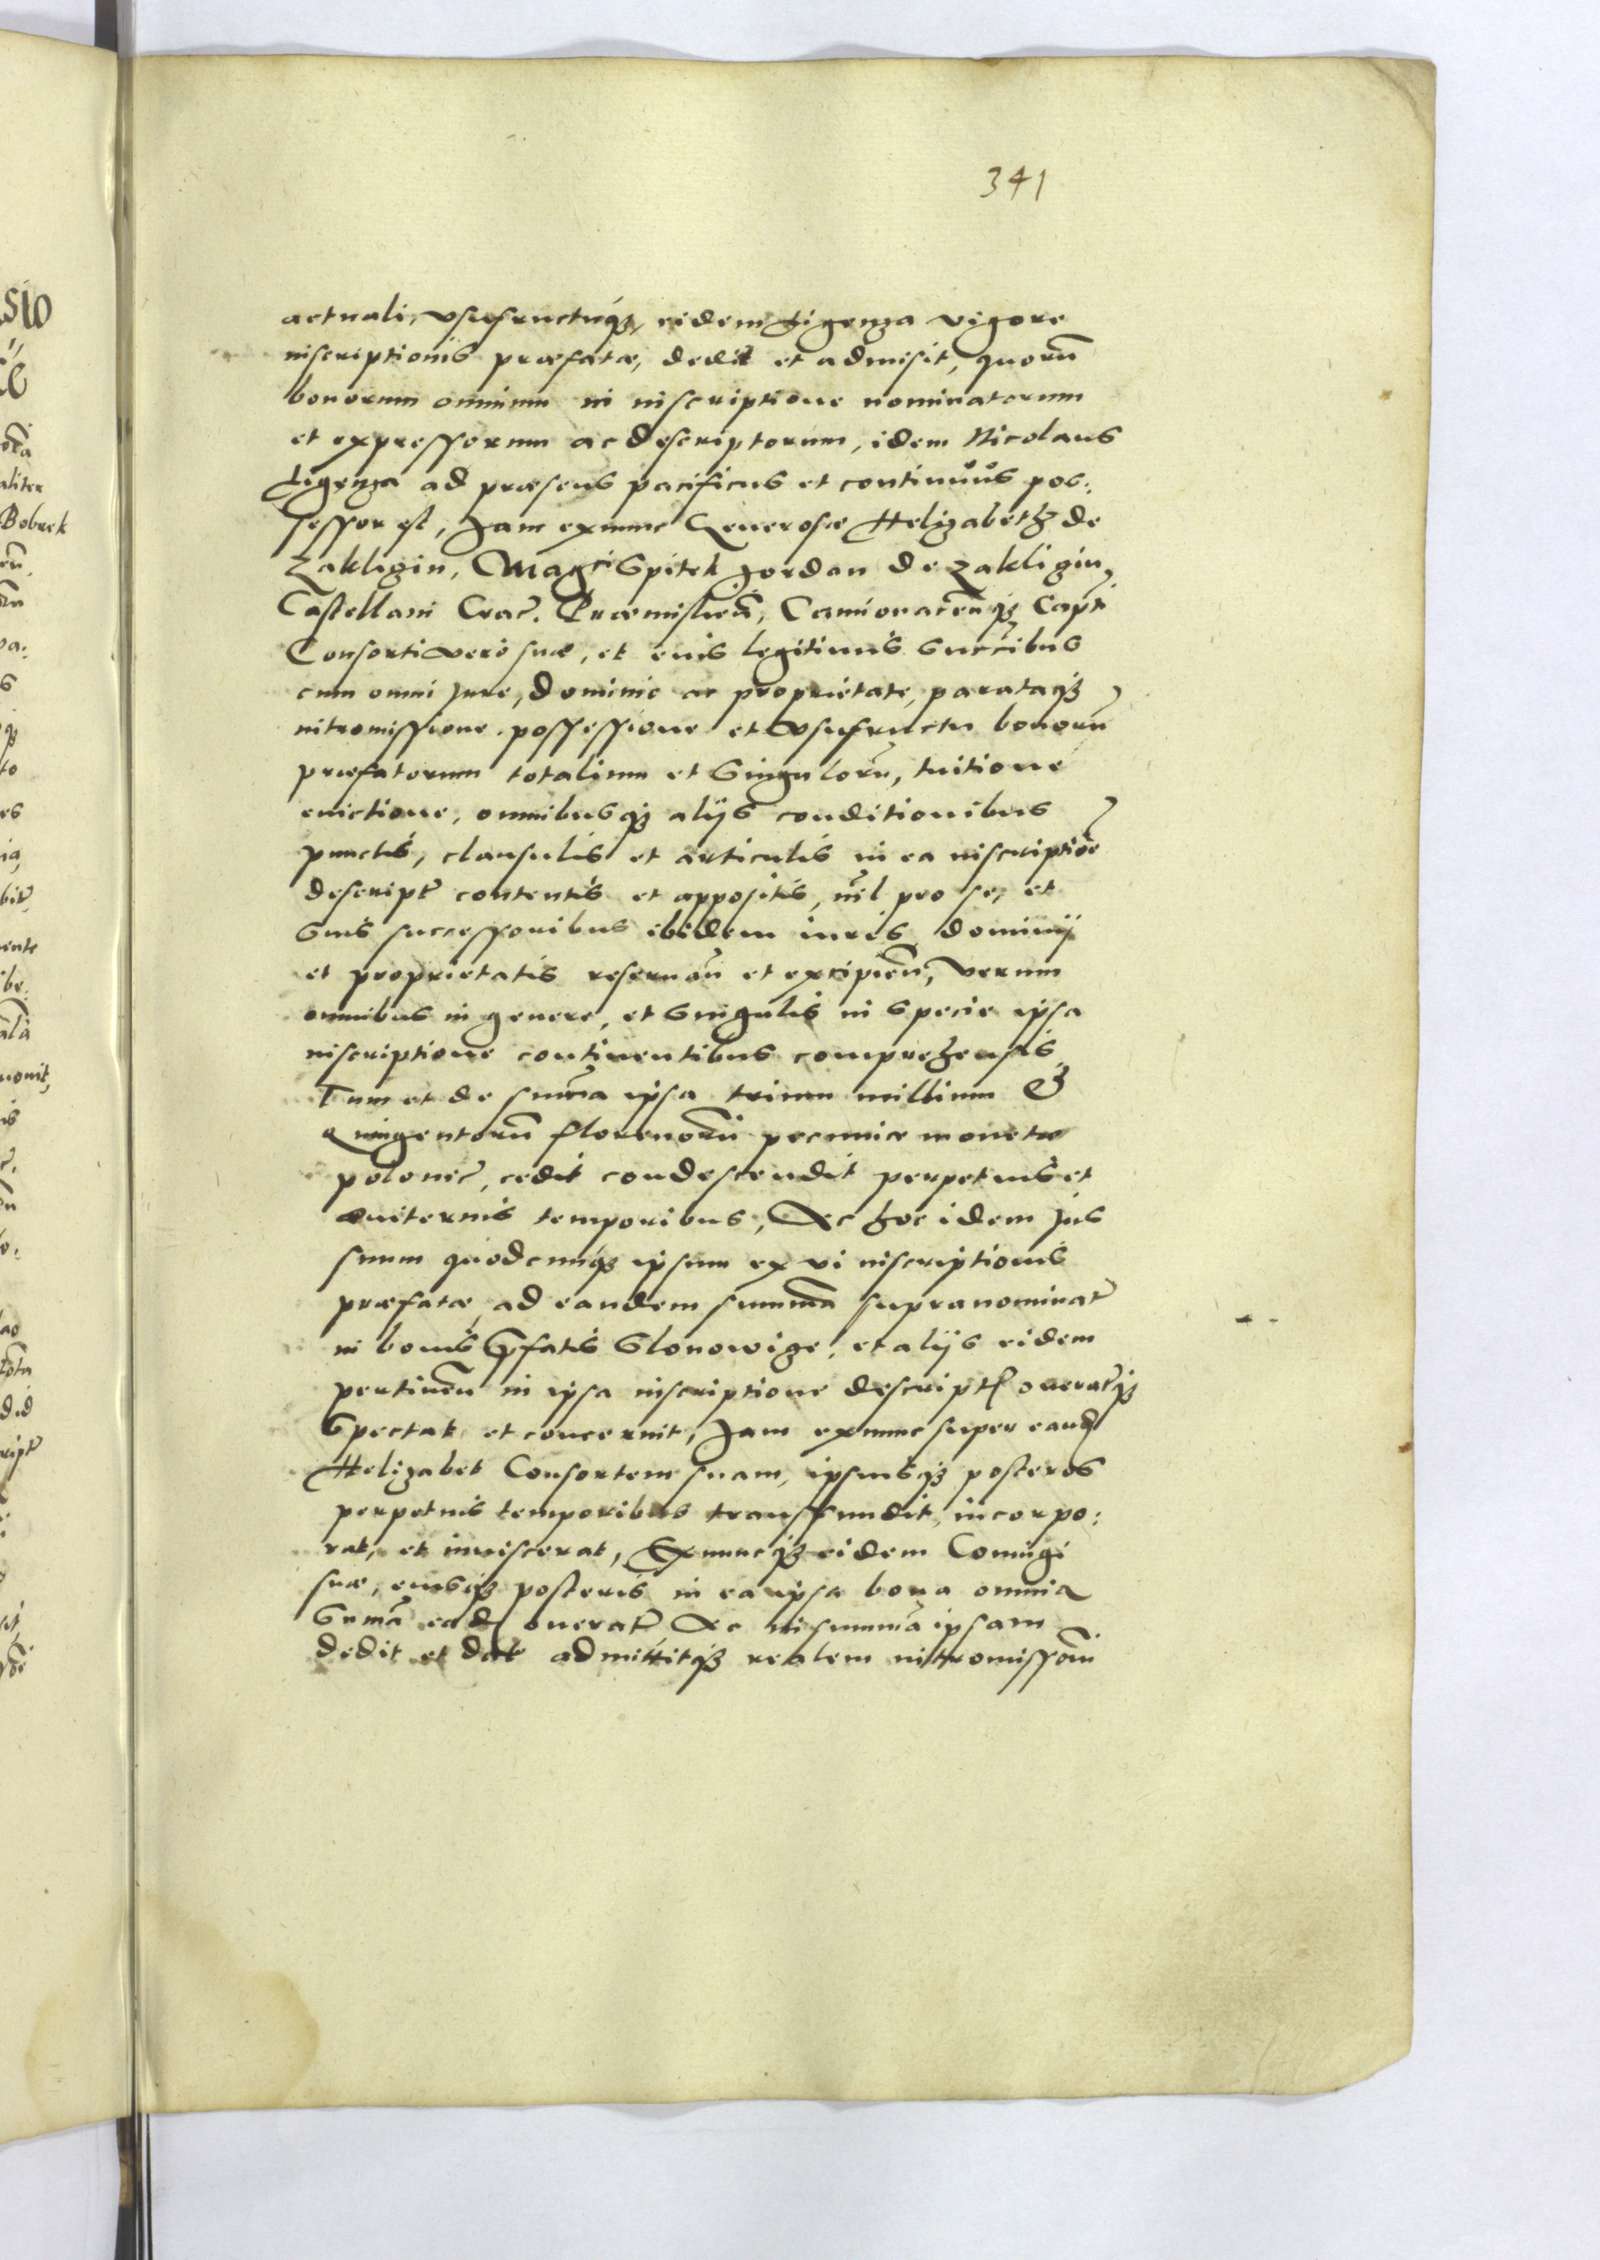 341
actuali, vsufructuq3, eidem Ligenza vigore
inscriptionis præfatæ, dedit et admisit, quorū
bonorum omnium in inscriptione nominatorum
et expressorum ac descriptorum, idem Nicolaus
Ligenza ad præsens pacificus et continuus pos:
sessor est, Jam exnunc Generosæ Helizabeth de
Zakligin, Magci Spitek Jordan de Zakligin,
Castellani Crac. Præmislien̄, Camionacen̄q3 Capti
Consorti vero suæ, et eius legitimis succibus
cum omni Jure, dominio ac proprietate, parataq3
intromissione, possessione et vsufructu bonorū
præfatorum totalium et singulorū, tuitione
euictione, omnibusq3 alijs conditionibus
punctis, clausulis et articulis in ea inscriptiōe
descript̄ contentis et appositis, nīl pro se, et
suis successoribus ibidem iuris, dominij
et proprietatis reseruan̄ et excipien̄, verum
omnibus in genere, et singulis in specie ipsa
inscriptione continentibus comprehensis,
Tum et de sum̄a ipsa trium millium &
Quingentorū florenorū pecuniæ monetæ
polonic̄, cedit condescendit perpetuis et
æuiternis temporibus, Ac hoc idem Jus
suum quodcunq3 ipsum ex vi inscriptionis
præfatæ, ad eandem summā supranominat̄
in bonis p̄fatis Glonowize, et alijs eidem
pertinen̄ in ipsa inscriptione descript̄ onerat̄q3
spectat et concernit, Jam exnunc super eand̄
Helizabet Consortem suam, ipsiusq3 posteros
perpetuis temporibus transfundit, incorpo:
rat, et inuiscerat, Exnuncq3 eidem Coniugi
suæ, eiusq3 posteris in ea ipsa bona omnia
sum̄a ead̄ onerat̄ Ac in summā ipsam
dedit et dat admittitq3 realem intromissiōn̄